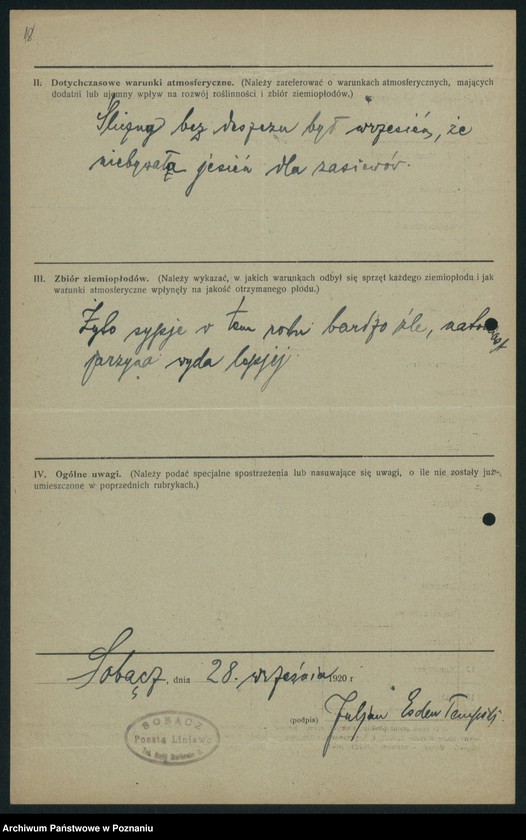 18
II. Dotychczasowe warunki atmosferyczne. (Należy zareferować o warunkach atmosferycznych, mających
dodatni lub ujemny wpływ na rozwój roślinności i zbiór ziemiopłodów.)
bez deszczu był wrzesień, że
niebywałą jesień dla zasiewów.
III. Zbiór ziemiopłodów. (Należy wykazać, w jakich warunkach odbył się sprzęt każdego ziemiopłodu i jak
warunki atmosferyczne wpłynęły na jakość otrzymanego płodu.)
Żyto sypje v tem roku bardzo źle, natomiast
jarzyna wyda lepjej
IV. Ogólne uwagi. (Należy podać specjalne spostrzeżenia lub nasuwające się uwagi, o ile nie zostały już
umieszczone w poprzednich rubrykach.)
Sobącz, dnia 28. września 1920 r
(podpis) Juljan Esden Tempski
SOBĄCZ
Poczta Liniewo
Archiwum Państwowe w Poznaniu